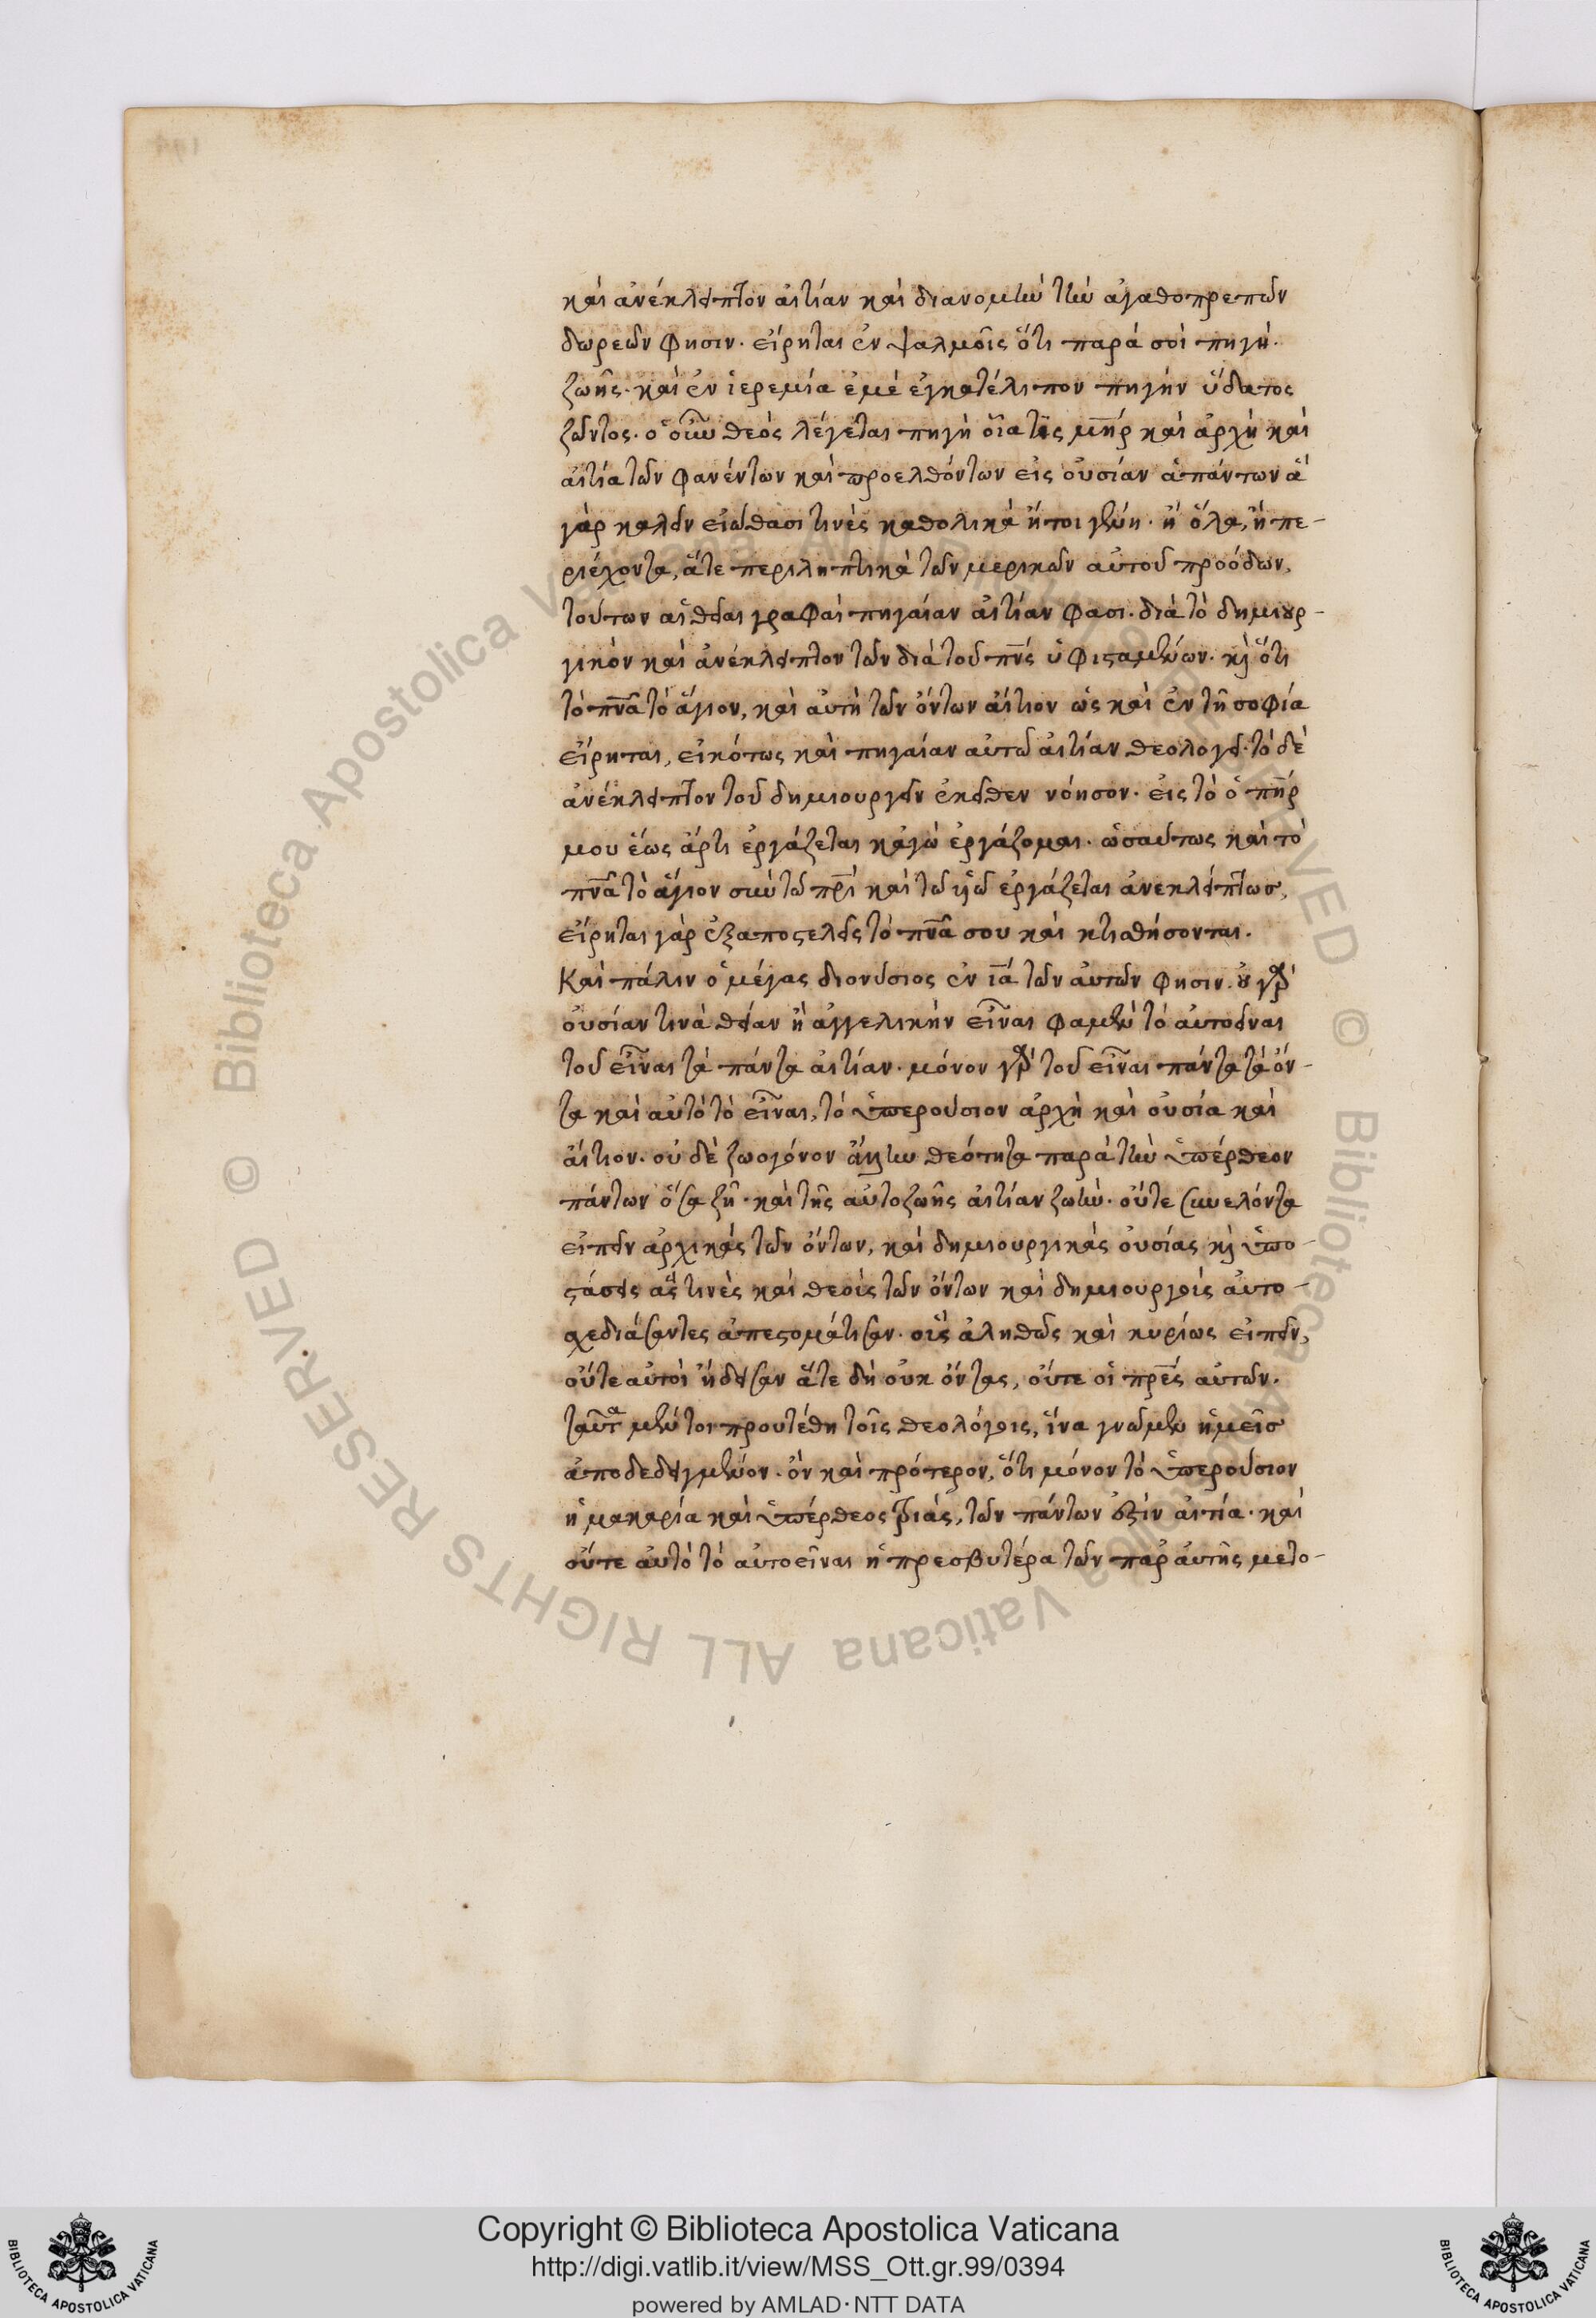 καὶ ἀνέκλειπτον αἰτίαν καὶ διανομὴν τῶν ἀγαθοπρεπῶν
δωρεῶν φησιν. εἴρηται ἐν ψαλμοῖς ὅτι παρά σοι πηγή.
ζωῆς. καὶ ἐν ἱερεμία ἐμὲ ἐγκατέλιπον πηγὴν ὕδατος
ζῶντος. ὁ οὖν θεὸς λέγεται πηγὴ οἷα τὶς μηρ καὶ ἀρχὴ καὶ
αἰτία τῶν φανέντων καὶ προελθόντων εἰς οὐσίαν ἁπάντων ἃ
γὰρ καλεῖν εἰώθασι τινὲς καθολικὰ ἤτοι γένη. ἢ ὅλα, ἢ πε-
ριέχοντα, ἅτε περιληπτικὰ τῶν μερικῶν αὐτοῦ προόδων,
τούτων αἱ θεῖαι γραφαὶ πηγαίαν αἰτίαν φασι. διὰ τὸ δημιουρ-
γικὸν καὶ ἀνέκλειπτον τῶν διὰ τοῦ πνς ὑφισταμένων. καὶ ὅτι
τὸ πνα τὸ ἅγιον, καὶ αὐτὴ τῶν ὄντων αἴτιον ὡς καὶ ἐν τῇ σοφία
εἴρηται, εἰκότως καὶ πηγαίαν αὐτῶ αἰτίαν θεολογεῖ. τὸ δὲ
ἀνέκλειπτον τοῦ δημιουργεῖν ἐκεῖθεν νόησον. εἰς τὸ ὁ πηρ
μου ἕως ἄρτι ἐργάζεται κἀγὼ ἐργάζομαι. ὡσαύτως καὶ τὸ
πνα τὸ ἅγιον σὺν τῶ πρι καὶ τῶ υἱῶ ἐργάζεται ἀνεκλείπτως,
εἴρηται γὰρ ἐξαποστελεῖς τὸ πνα σου καὶ κτισθήσονται.
Καὶ πάλιν ὁ μέγας διονύσιος ἐν ια τῶν αὐτῶν φησιν. οὐ γὰρ
οὐσίαν τινὰ θείαν ἢ ἀγγελικὴν εἶναι φαμὲν τὸ αὐτοεῖναι
τοῦ εἶναι τὰ πάντα αἰτίαν. μόνον γὰρ τοῦ εἶναι πάντα τὰ ὄν-
τα καὶ αὐτὸ τὸ εἶναι, τὸ ὑπερούσιον ἀρχὴ καὶ οὐσία καὶ
αἴτιον. οὐδὲ ζωογόνον ἄλλην θεότητα παρὰ τὴν ὑπέρθεον
πάντων ὅσα ζῆ. καὶ τῆς αὐτοζωῆς αἰτίαν ζωήν. οὔτε συνελόντα
εἰπεῖν ἀρχικὰς τῶν ὄντων, καὶ δημιουργικὰς οὐσίας καὶ ὑπο-
στάσεις ἅς τινὲς καὶ θεοὺς τῶν ὄντων καὶ δημιουργοὺς αὐτο-
σχεδιάσαντες ἀπεστομάτισαν. οὓς ἀληθῶς καὶ κυρίως εἰπεῖν,
οὔτε αὐτοὶ ᾔδεισαν ἅτε δὴ οὐκ ὄντας, οὔτε οἱ πρες αὐτῶν.
ταῦτα μέντοι προυτέθη τοῖς θεολόγοις, ἵνα γνῶμεν ἡμεῖς
ἀποδεδειγμένον. ὃν καὶ πρότερον, ὅτι μόνον τὸ ὑπερούσιον
ἡ μακαρία καὶ ὑπέρθεος τριάς, τῶν πάντων ἐστὶν αἰτία. καὶ
οὔτε αὐτὸ τὸ αὐτοεῖναι ἡ πρεσβυτέρα τῶν παρ' αὐτῆς μετο-
Copyright © Biblioteca Apostolica Vaticana
http://digi.vatlib.it/view/MSS_Ott.gr.99/0394
powered by AMLAD·NTT DATA
BIBLIOTECA APOSTOLICA VATICANA
BIBLIOTECA APOSTOLICA VATICANA
© Biblioteca Apostolica Vaticana ALL RIGHTS RESERVED © Biblioteca Apostolica Vaticana ALL RIGHTS RESERVED